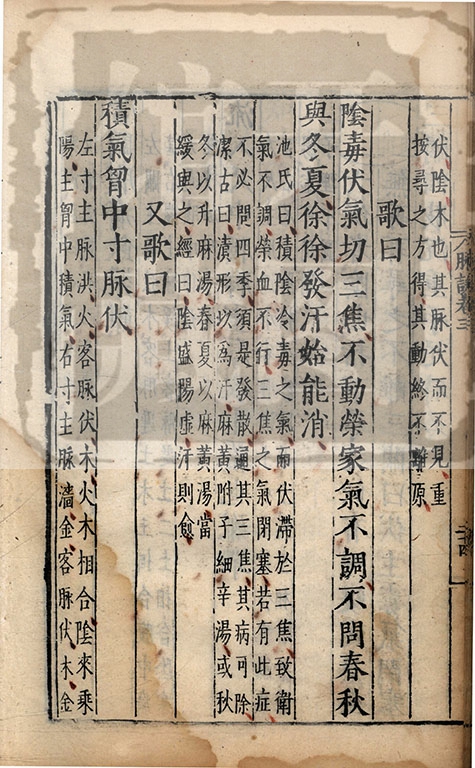 脈訣卷三
伏陰木也其脈伏而不見重
按尋之方得其動終不離原
歌曰
陰毒伏氣切三焦不動榮家氣不調不問春秋
與冬夏徐徐發汗始能消
池氏曰積陰冷毒之氣而伏滯於三焦致衛
氣不調榮血不行三焦之氣閉塞若有此症
不必問四季須是發散通其三焦其病可除
潔古曰漬形以爲汗麻黃附子細辛湯或秋
冬以升麻湯春夏以麻黃湯當
緩與之經曰陰盛陽虛汗則愈
又歌曰
積氣胷中寸脉伏
左寸主脉洪火客脉伏木火木相合陰來乘
陽主胷中積氣右寸主脉濇金客脉伏木金